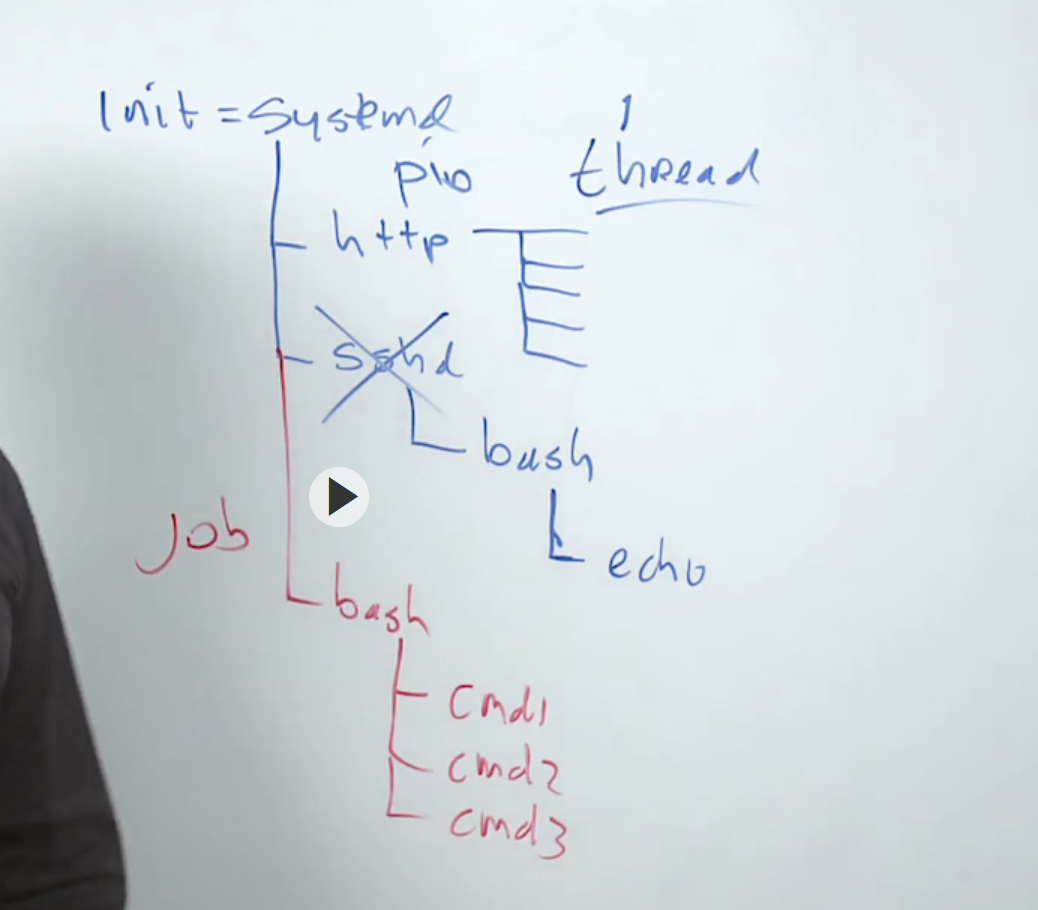 Init = Systemd
1
thread
http
sshd
bash
echo
Job
bash
Cmd1
cmd2
cmd3